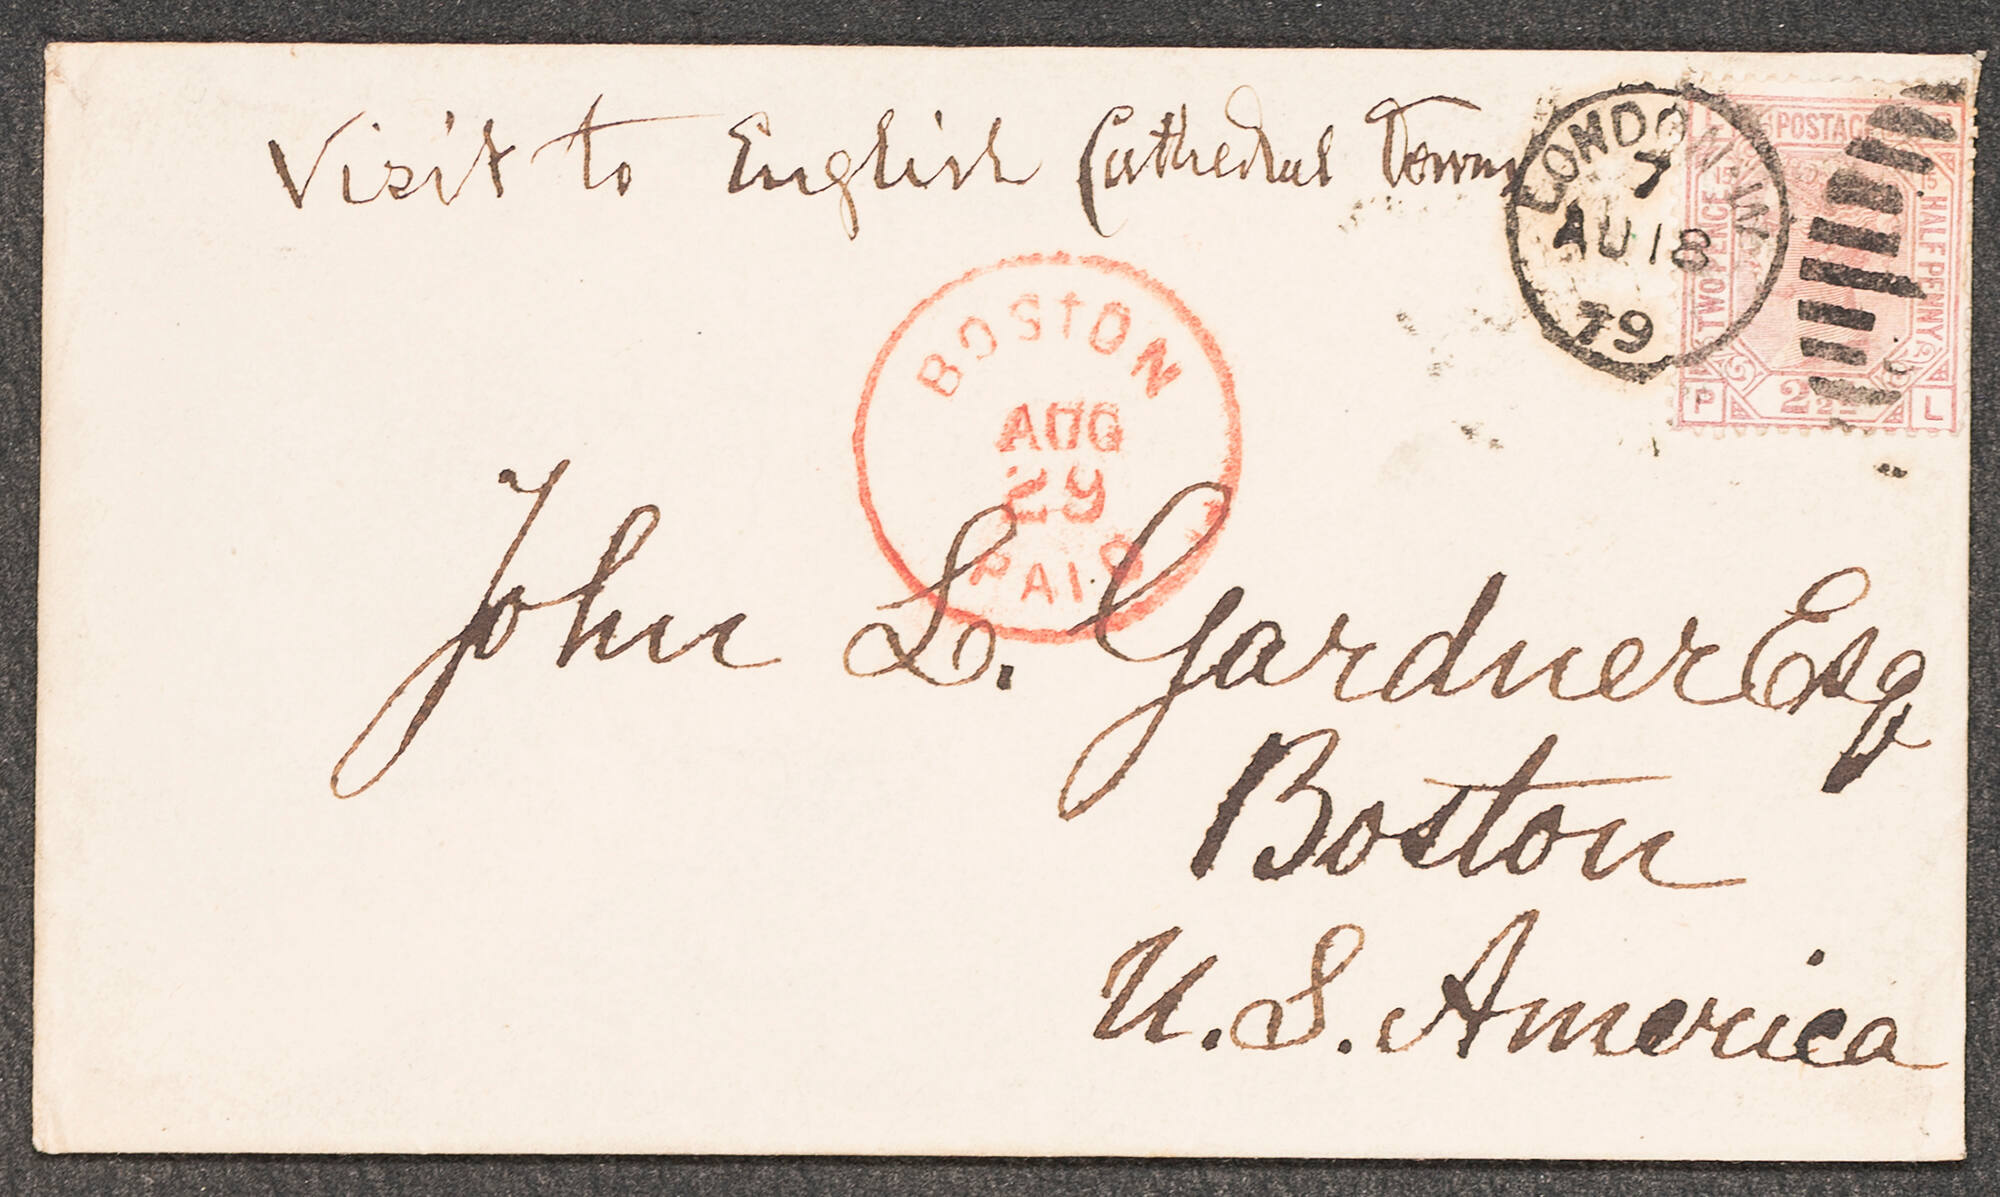 Visit to English Cathedral Towns
LONDON . W
7
AU 18
79
POSTAGE
TWO PENCE
HALF PENNY
2½
P
L
BOSTON
AUG
29
PAID
John L. Gardner Esq
Boston
U. S. America